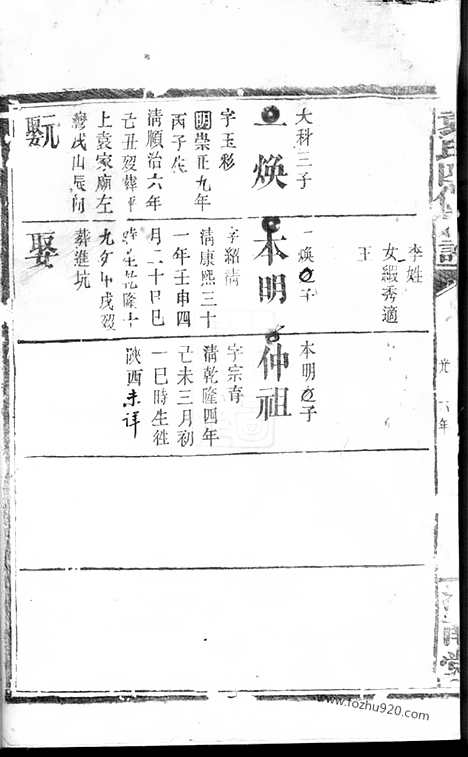 李姓
女緞秀適
王
大科三子
一煥
字玉彩
明崇正九年
丙子生
清順治六年
己丑歿葬平
上袁家廟左
灣戌山辰向
元娶
一煥子
本明
字紹清
清康熙三十
一年壬申四
月二十日巳
時生乾隆十
九年甲戌歿
葬進坑
娶
本明子
仲祖
字宗育
清乾隆四年
己未三月初
一巳時生徃
陝西未详
光
六年
www.fozhu920.com